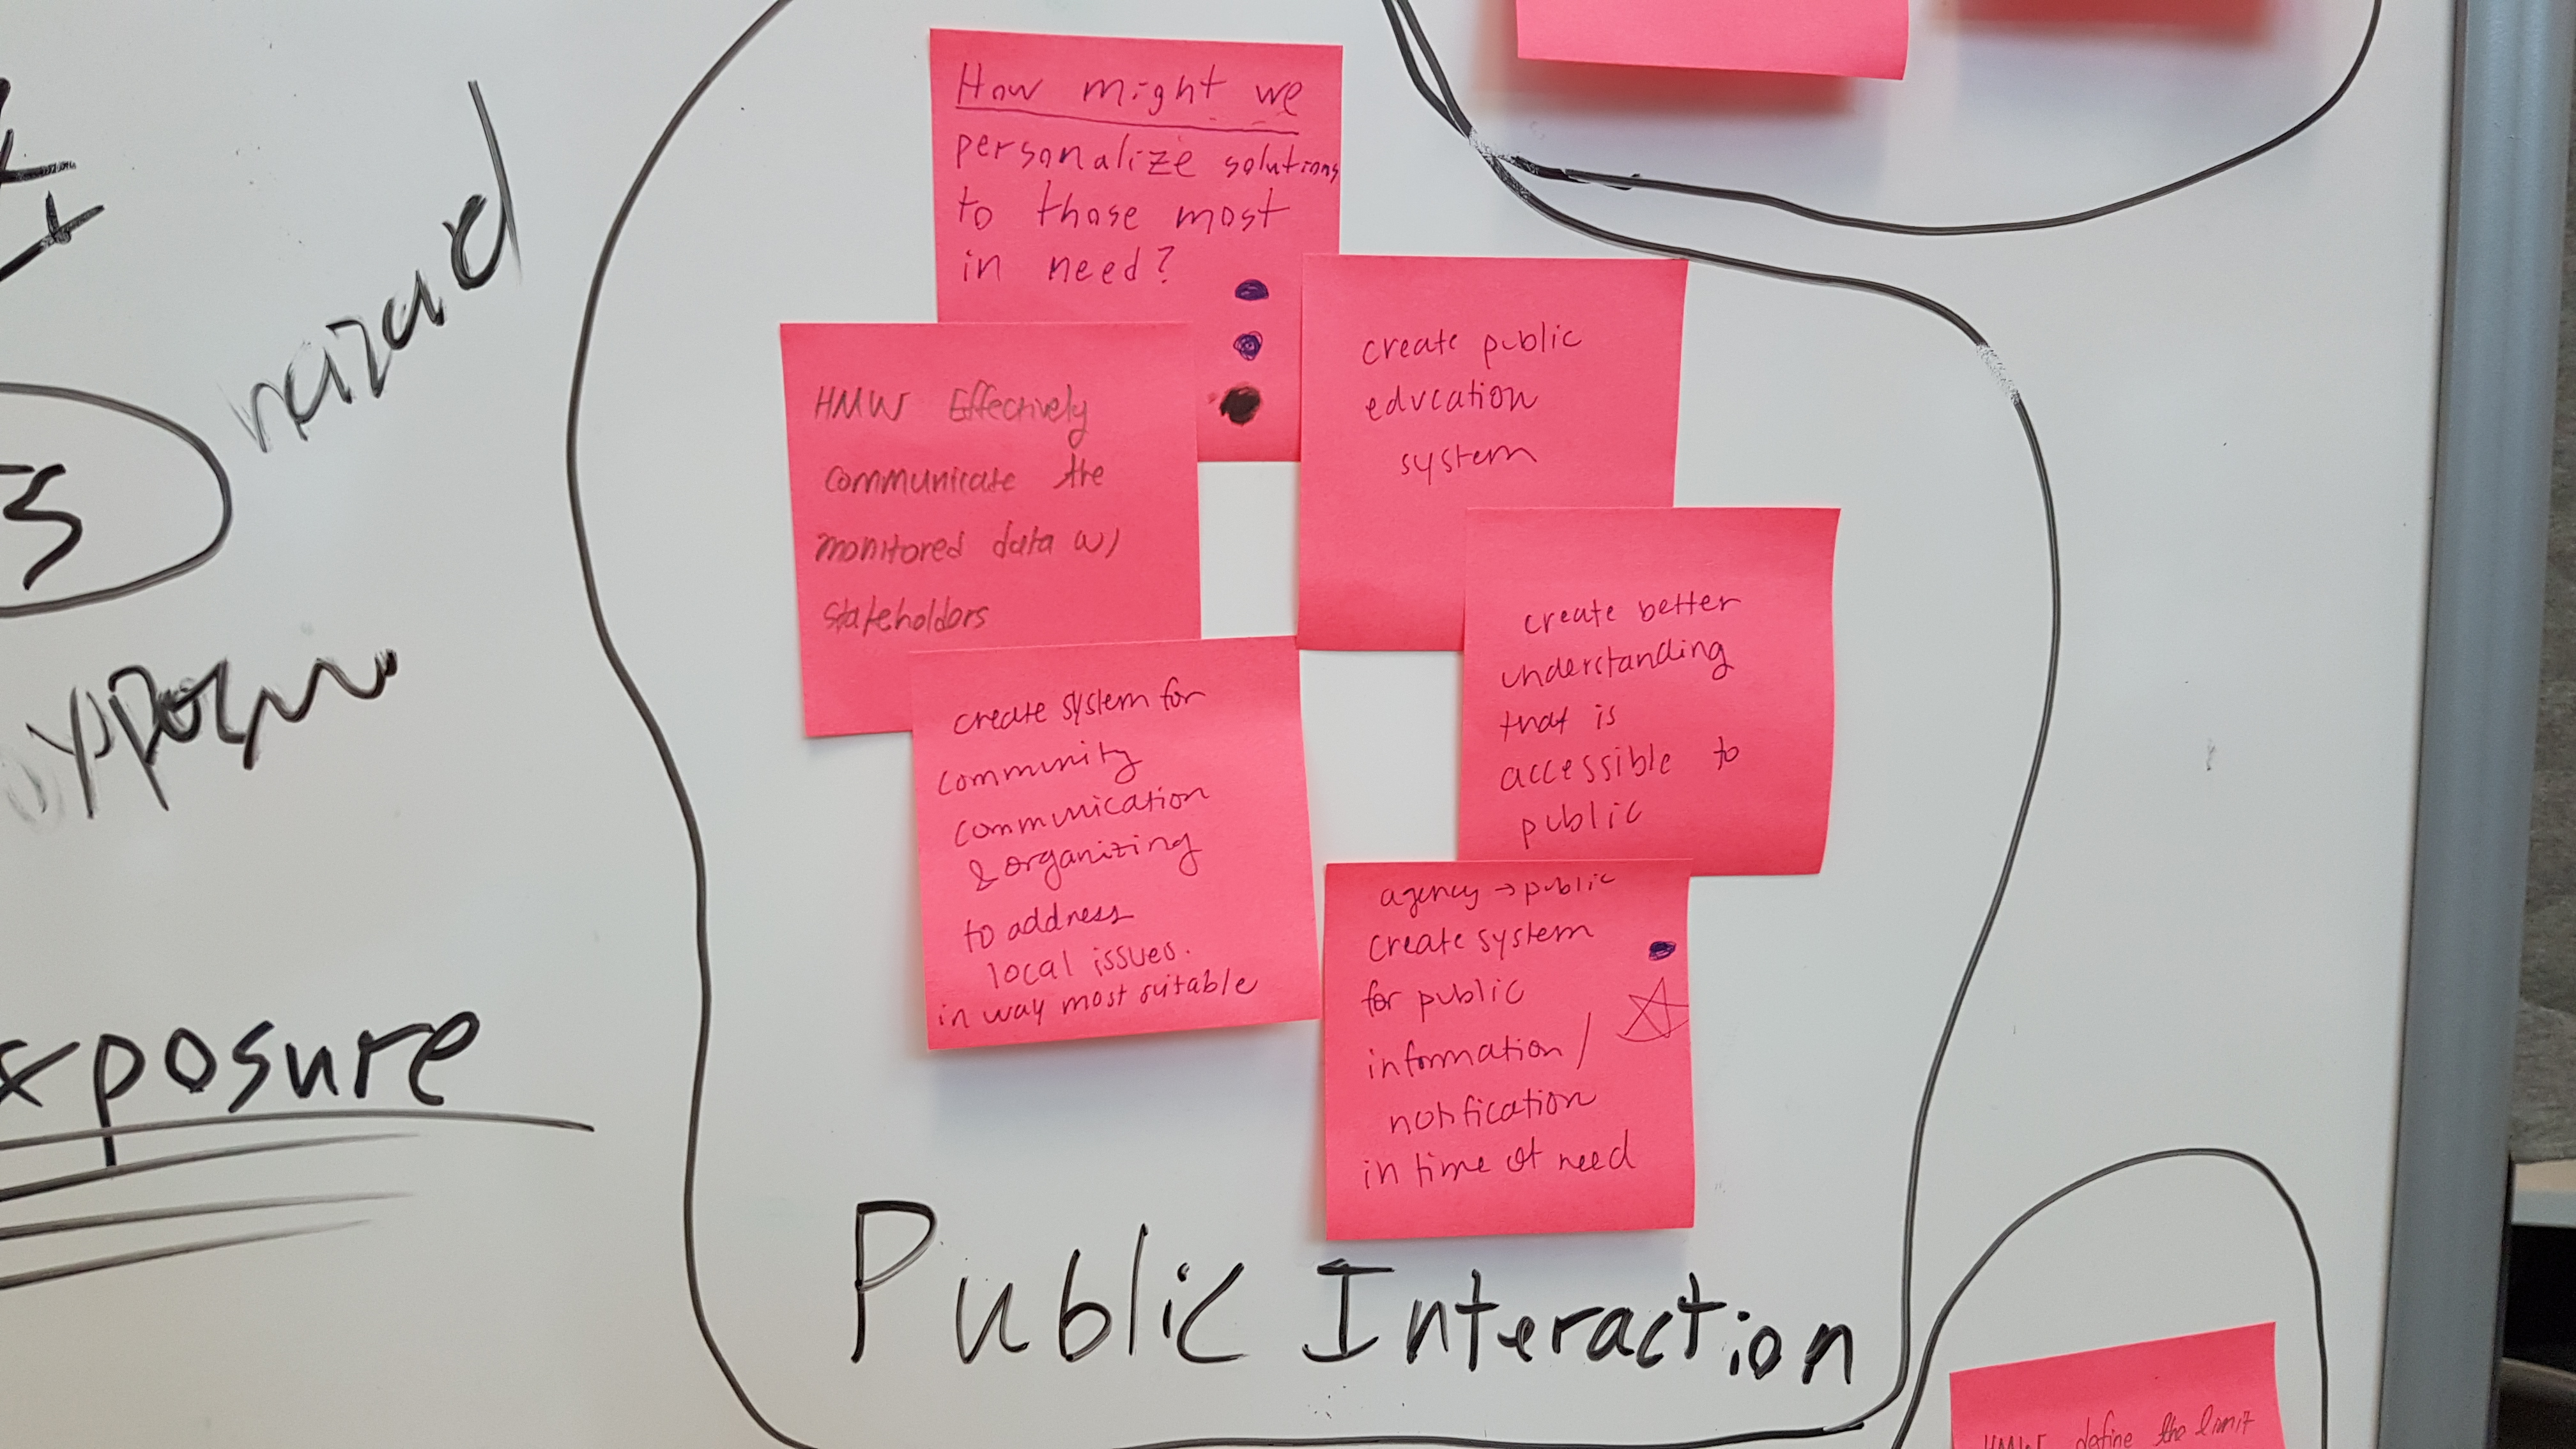 How might we
personalize solutions
to those most
in need?
HMW Effectively
communicate the
monitored data w/
stakeholdors
create public
education
system
create better
understanding
that is
accessible to
public
create system for
community
communication
& organizing
to address
local issues.
in way most suitable
agency → public
create system
for public
information /
notification
in time of need
Public Interaction
hazard
xposure
HMW define the limit